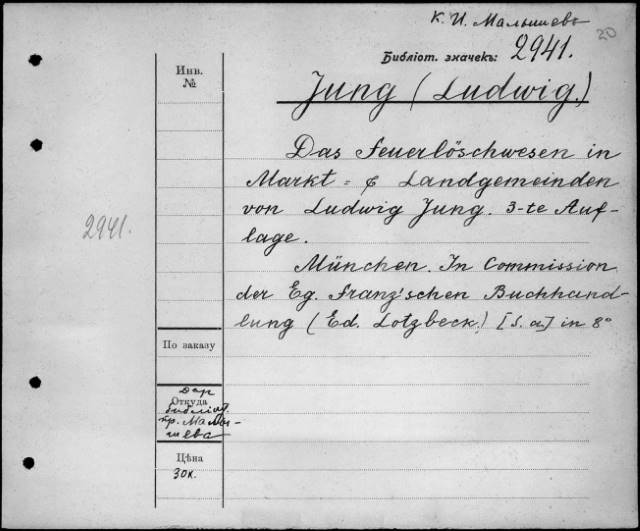 К. И. Малышевъ
20
Библіот. значекъ: 2941.
Инв.
№
Jung (Ludwig.)
Das Feuerlöschwesen in
Markt- & Landgemeinden
von Ludwig Jung. 3-te Auf-
lage.
2941.
München. In Commission
der Eg. Franz'schen Buchhand-
lung (Ed. Lotzbeck.) [S. a.] in 8°
По заказу
Откуда
Дар
библіот.
пр. Малы-
шева
Цѣна
30к.